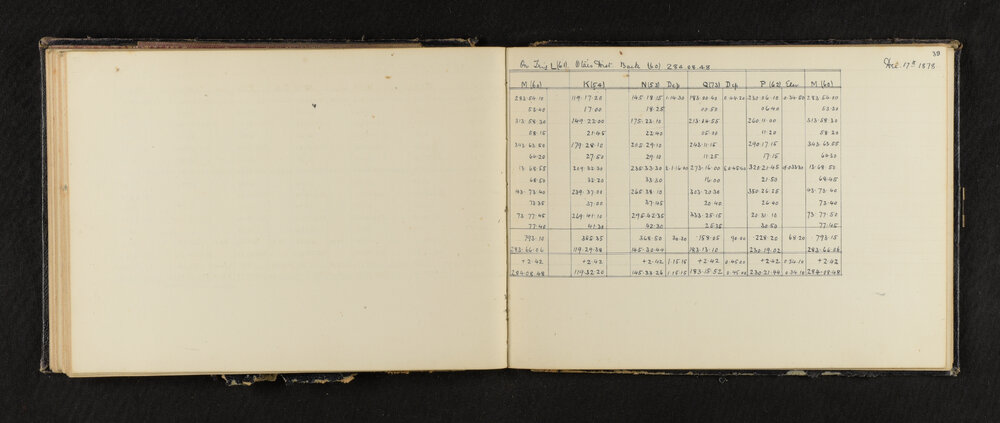 39
On Trig L(61). Back (60) 284.08.48 Dec. 17th 1878
M (60) K(54) N(53) Dep Q(73) Dep P (62) Elev M (60)
283.54.10 119.17.20 145.18.15 1.14.30 183.00.40 0.44.20 230.06.10 0.34.50 283.54.00
53.40 17.00 18.25 00.50 06.40 53.30
313.58.30 149.22.00 175.23.10 213.04.55 260.11.00 313.58.30
58.15 21.45 22.40 05.00 11.20 58.20
343.63.50 179.28.10 205.29.10 243.11.15 290.17.15 343.63.55
64.20 27.50 29.10 11.25 17.15 64.30
13.68.55 209.32.30 235.33.30 273.16.00 320.21.45 13.68.50
68.50 32.20 33.30 16.00 21.50 68.45
43.73.40 239.37.00 265.38.10 303.20.30 350.26.25 43.73.40
73.35 37.00 37.45 20.40 26.40 73.40
73.77.45 269.41.10 295.42.35 333.25.15 20.31.10 73.77.50
77.40 41.30 42.30 25.35 30.50 77.45
793.10 355.35 368.50 30.30 158.05 90.00 228.20 68.20 793.15
283.66.06 119.29.38 145.30.44 183.13.10 230.19.02 283.66.06
+2.42 +2.42 +2.42 1.15.15 +2.42 0.45.00 +2.42 0.34.10 +2.42
284.08.48 119.32.20 145.33.26 1.15.15 183.15.52 0.45.00 230.21.44 0.34.10 284.08.48